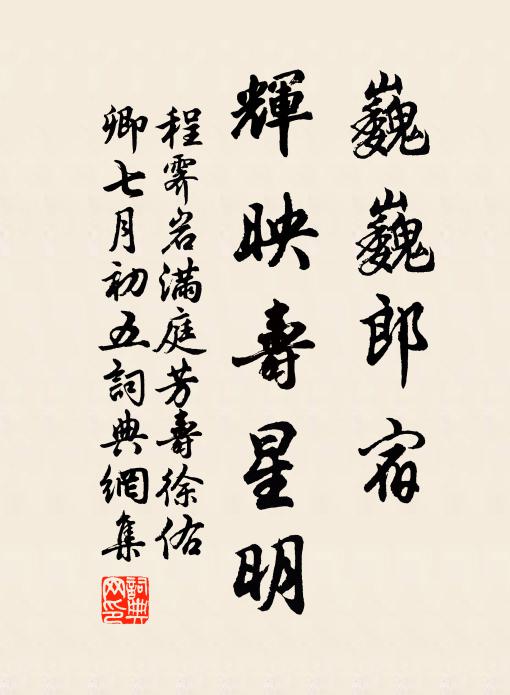 巍巍郎宿
輝映壽星明
程霽岩滿庭芳壽徐佑
卿七月初五詞典網集
詞典網印